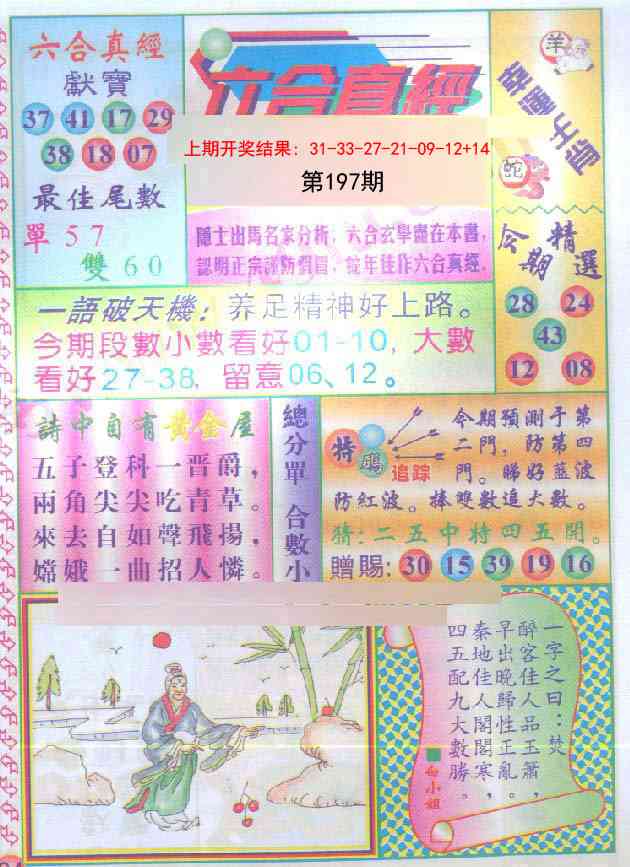 六合真經
獻寶
37 41 17 29
38 18 07
最佳尾數
單57
雙60
六合真經
上期开奖结果: 31-33-27-21-09-12+14
第197期
隱士出馬名家分析,六合玄學盡在本書,
認明正宗謹防假冒,蛇年佳作六合真經.
羊
幸運生肖
蛇
今期精選
28 24
43
12 08
一語破天機:养足精神好上路。
今期段數小數看好01-10,大數
看好27-38,留意06、12。
詩中自有黃金屋
五子登科一晋爵,
兩角尖尖吃青草。
來去自如聲飛揚,
嫦娥一曲招人憐。
總分單 合數小
特碼
追踪
今期預測于第
二門,防第四
門。睇好藍波
防紅波。捧雙數追大數。
猜:二五中特四五開。
贈賜:30 15 39 19 16
一字之曰:焚
醉客佳人品玉簫,
早出晚歸性正亂,
秦地佳人閣閣寒,
四五配九大數勝。
白小姐